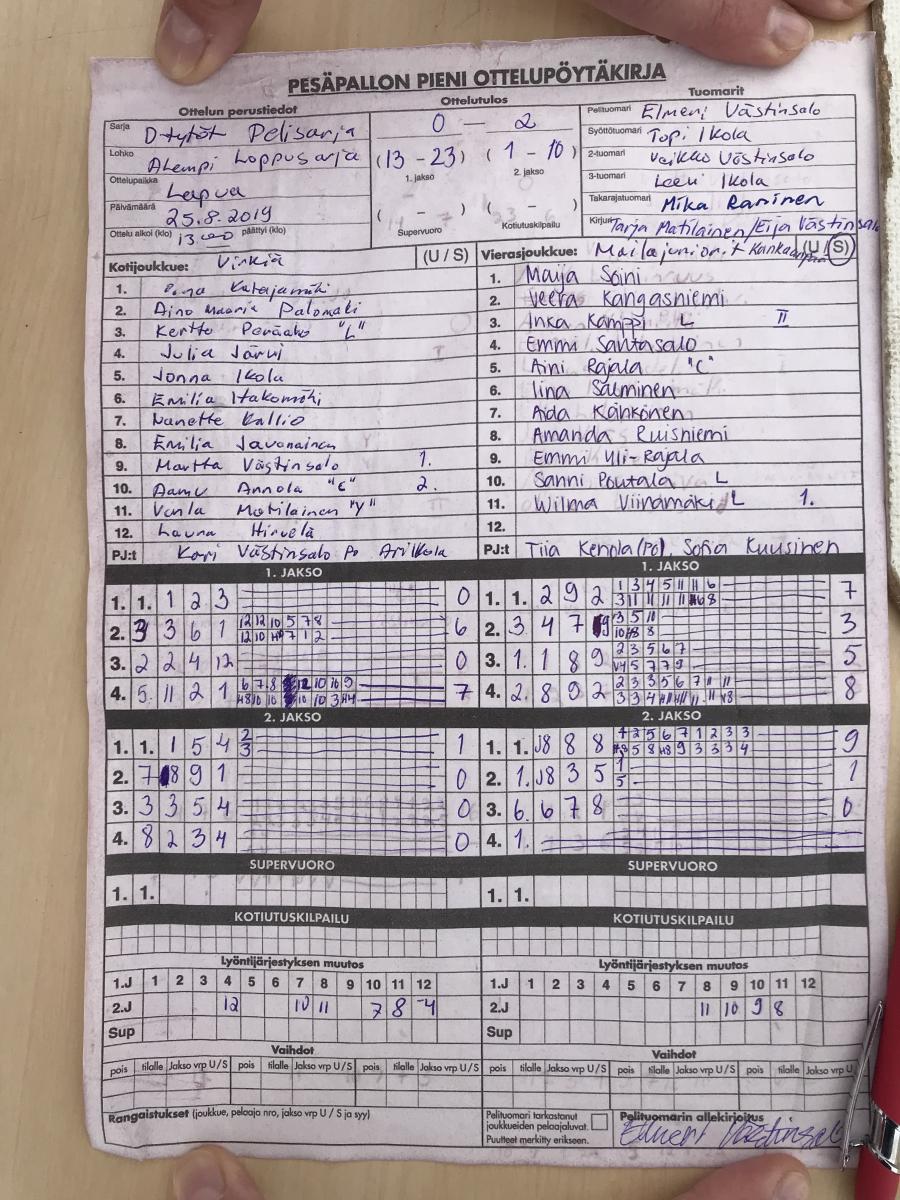 PESÄPALLON PIENI OTTELUPÖYTÄKIRJA
Ottelun perustiedot
Ottelutulos
Tuomarit
Sarja D-tytöt Pelisarja
0 — 2
Pelituomari Elmeri Västinsalo
Lohko Alempi Loppusarja
(13 - 23) (1 - 10)
1. jakso 2. jakso
Syöttötuomari Topi Ikola
2-tuomari Veikko Västinsalo
Ottelupaikka Lapua
3-tuomari Leevi Ikola
Päivämäärä 25.8.2019
( - ) ( - )
Supervuoro Kotiutuskilpailu
Takarajatuomari Mika Raninen
Ottelu alkoi (klo) 13.00 päättyi (klo)
Kirjuri Tarja Matilainen/Eija Västinsalo
Kotijoukkue: Virkiä (U / S)
Vierasjoukkue: Mailajuniorit Kankaanpää (U / S)
1. Katajamäki
2. Aino Maaria Palomäki
3. Kerttu Peräaho "L"
4. Julia Järvi
5. Jonna Ikola
6. Emilia Itäkomähi
7. Nanette Kallio
8. Emilia Javanainen
9. Martta Västinsalo 1.
10. Aamu Annola "C" 2.
11. Vanla Matilainen "Y"
12. Launa Hirvelä
PJ:t Kari Västinsalo Po Ari Ikola
1. Maija Soini
2. Veera Kangasniemi
3. Inka Kamppi L II
4. Emmi Santasalo
5. Aini Rajala "C"
6. Iina Salminen
7. Aida Kähkönen
8. Amanda Ruisniemi
9. Emmi Yli-Rajala
10. Sanni Poutala L
11. Wilma Viinamäki L 1.
12.
PJ:t Tiia Kenola (PO), Sofia Kuusinen
1. JAKSO
1. 1. 1 2 3 0
2. 3 3 6 1 12 12 10 5 7 8 6
3. 2 2 4 12 0
4. 5. 11 2 1 7
1. JAKSO
1. 1. 2 9 2 1 3 4 5 11 11 6 7
2. 3 4 7 9 3 5 11 3
3. 1. 1 8 9 2 3 5 6 7 5
4. 2. 8 9 2 2 3 3 5 6 7 11 11 8
2. JAKSO
1. 1. 1 5 4 2 1
3
2. 7 8 9 1 0
3. 3 3 5 4 0
4. 8 2 3 4 0
2. JAKSO
1. 1. 8 8 2 5 6 7 1 2 3 3 9
2. 1. 8 3 5 1 1
5
3. 6. 6 7 8 0
4. 1.
SUPERVUORO
1. 1.
SUPERVUORO
1. 1.
KOTIUTUSKILPAILU
KOTIUTUSKILPAILU
Lyöntijärjestyksen muutos
1.J 1 2 3 4 5 6 7 8 9 10 11 12
2.J 12 10 11 7 8 4
Sup
Lyöntijärjestyksen muutos
1.J 1 2 3 4 5 6 7 8 9 10 11 12
2.J 11 10 9 8
Sup
Vaihdot
pois tilalle Jakso vrp U / S pois tilalle Jakso vrp U / S pois tilalle Jakso vrp U / S
Vaihdot
pois tilalle Jakso vrp U / S pois tilalle Jakso vrp U / S pois tilalle Jakso vrp U
Rangaistukset (joukkue, pelaaja nro, jakso vrp U / S ja syy)
Pelituomari tarkastanut
joukkueiden pelaajaluvat.
Puutteet merkitty erikseen.
Pelituomarin allekirjoitus
Elmeri Västinsalo